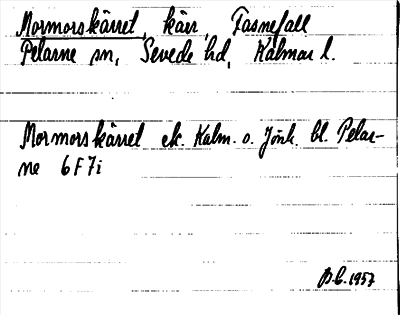 Mormorskärret, kärr, Fasnefall
Pelarne sn, Sevede hd, Kalmar l.
Mormorskärret ek. Kalm. o. Jönk. bl. Pelar-
ne 6 F 7 i
B.G. 1957